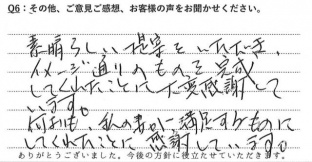 Q6：その他、ご意見ご感想、お客様の声をお聞かせください。
素晴らしい提案をいただき、
イメージ通りのものを完成
してくれたことに大変感謝して
います。
何よりも、私の妻が満足するものに
してくれたことに感謝しています。
ありがとうございました。今後の方針に役立たせていただきます。